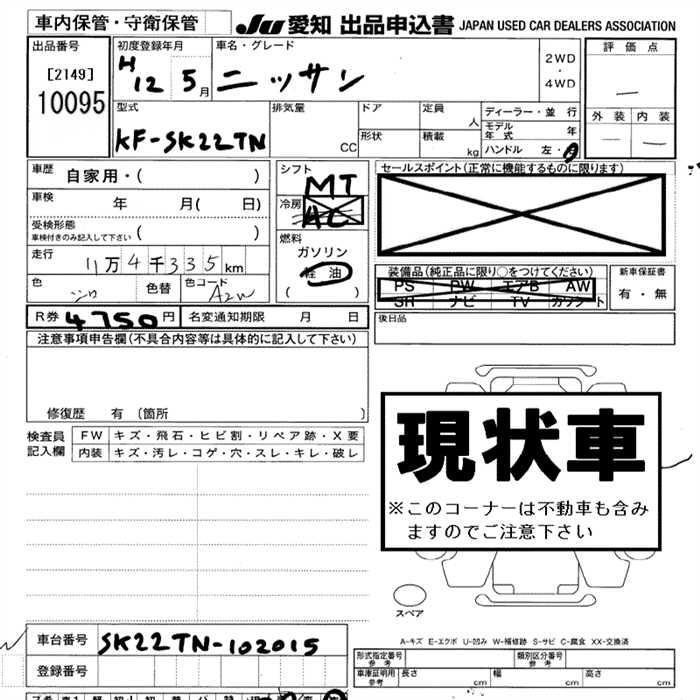 車内保管・守衛保管
JU 愛知 出品申込書 JAPAN USED CAR DEALERS ASSOCIATION
出品番号
[2149]
10095
初度登録年月
H 12 5月
車名・グレード
ニッサン
2WD
・
4WD
評価点
—
外装 内装
— —
型式
KF-SK22TN
排気量
CC
ドア
形状
定員
人
積載
kg
ディーラー・並行
モデル年式 年
ハンドル 左・
車歴 自家用・( )
車検 年 月( 日)
受検形態
車検付きのみ記入して下さい ( )
走行 11万4千335km
色 シロ 色替 色コード
R券 4750円 名変通知期限 月 日
シフト
MT
冷房
AC
燃料
ガソリン
軽油
( )
セールスポイント(正常に機能するものに限ります)
装備品(純正品に限り○をつけてください)
PS PW エアB AW
SR ナビ TV カワシート
新車保証書
有・無
後日品
注意事項申告欄(不具合内容等は具体的に記入して下さい)
修復歴 有 〔箇所 〕
検査員記入欄
FW キズ・飛石・ヒビ割・リペア跡・X要
内装 キズ・汚レ・コゲ・穴・スレ・キレ・破レ
現状車
※このコーナーは不動車も含み
ますのでご注意下さい
スペア
A-キズ E-エクボ U-凹み W-補修跡 S-サビ C-腐食 XX-交換済
車台番号 SK22TN-102015
登録番号
形式指定番号
参考
類別区分番号
参考
車庫証明用
参考
長さ cm 幅 cm 高さ cm